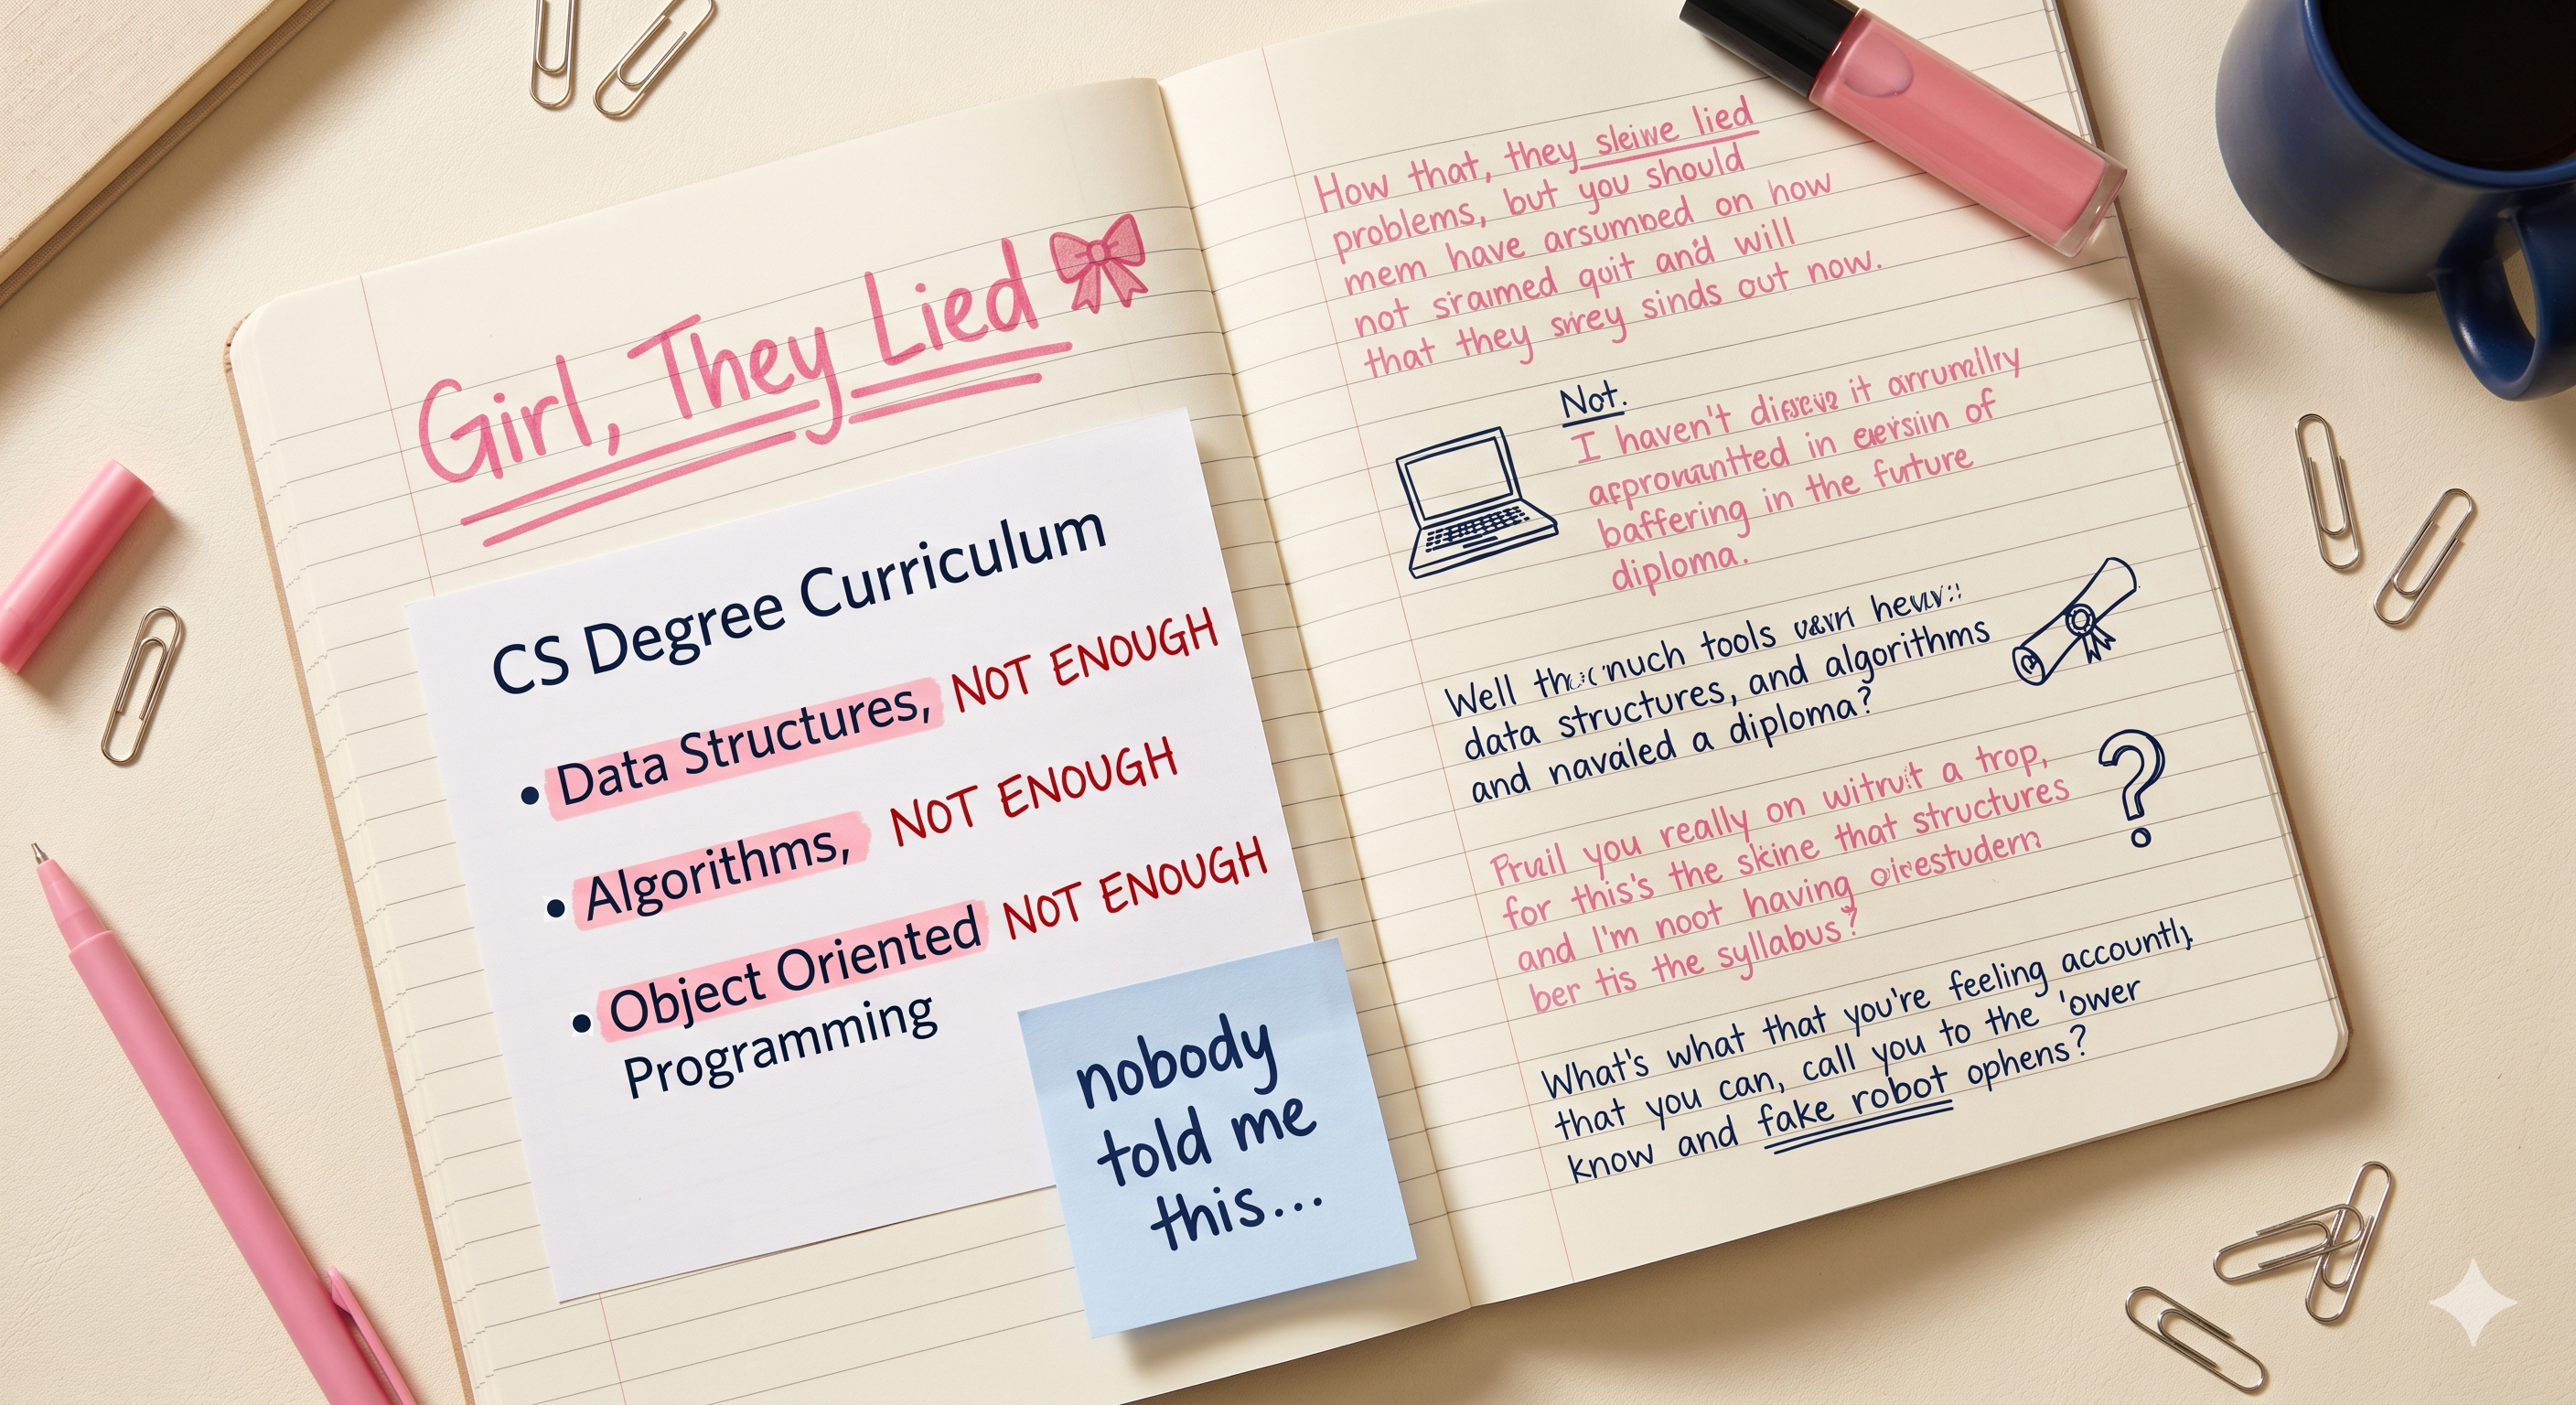 Girl, They Lied
CS Degree Curriculum
• Data Structures, NOT ENOUGH
• Algorithms, NOT ENOUGH
• Object Oriented NOT ENOUGH
Programming
nobody
told me
this...
How that, they lied
problems, but you should
mem have on how
not quit and will
that they sinds out now.
Not.
I haven't it
in of
baffering in the future
diploma.
Well much tools
data structures, and algorithms
and a diploma?
you really on a trop,
for this's the skine that structures
and I'm noot having
ber tis the syllabus?
What's what that you're feeling
that you can, call you to the 'ower
know and fake robot ophens?